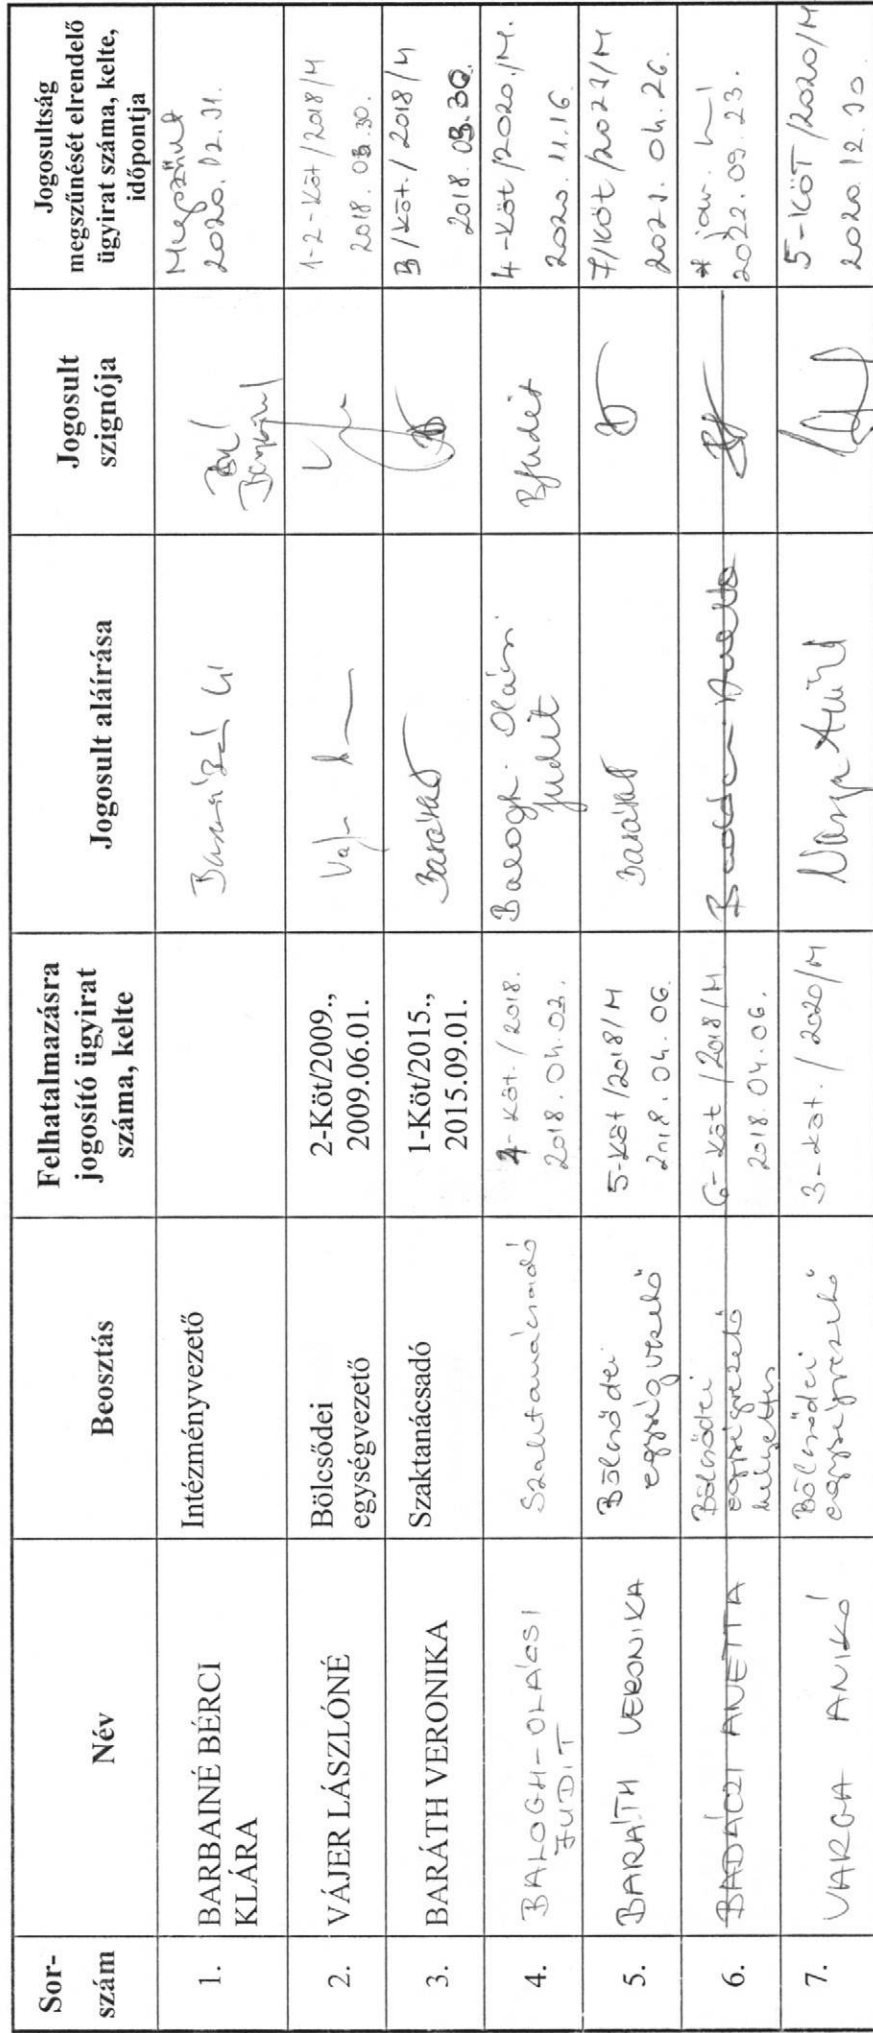 Sor-
szám
Név
Beosztás
Felhatalmazásra
jogosító ügyirat
száma, kelte
Jogosult aláírása
Jogosult
szignója
Jogosultság
megszűnését elrendelő
ügyirat száma, kelte,
időpontja
1.
BARBAINÉ BÉRCI
KLÁRA
Intézményvezető
Megszűnt
2020.12.31.
2.
VÁJER LÁSZLÓNÉ
Bölcsődei
egységvezető
2-Köt/2009.,
2009.06.01.
1-2-Köt/2018/M
2018.03.30.
3.
BARÁTH VERONIKA
Szaktanácsadó
1-Köt/2015.,
2015.09.01.
Baráth
3/Köt./2018/M
2018.03.30.
4.
BALOGH-OLÁCSI
JUDIT
Szaktanácsadó
4-Köt./2018.
2018.04.03.
Balogh-Olácsi
Judit
BJudit
4-Köt/2020./M.
2020.11.16.
5.
BARÁTH VERONIKA
Bölcsődei
egységvezető
5-Köt/2018/M
2018.04.06.
Baráth
7/Köt/2021/M
2021.04.26.
6.
BADÁCZI ANETTA
Bölcsődei
egységvezető
helyettes
6-Köt/2018/M
2018.04.06.
2022.09.23.
7.
VARGA ANIKÓ
Bölcsődei
egységvezető
3-Köt./2020/M
Varga Anikó
5-KÖT/2020/M
2020.12.30.